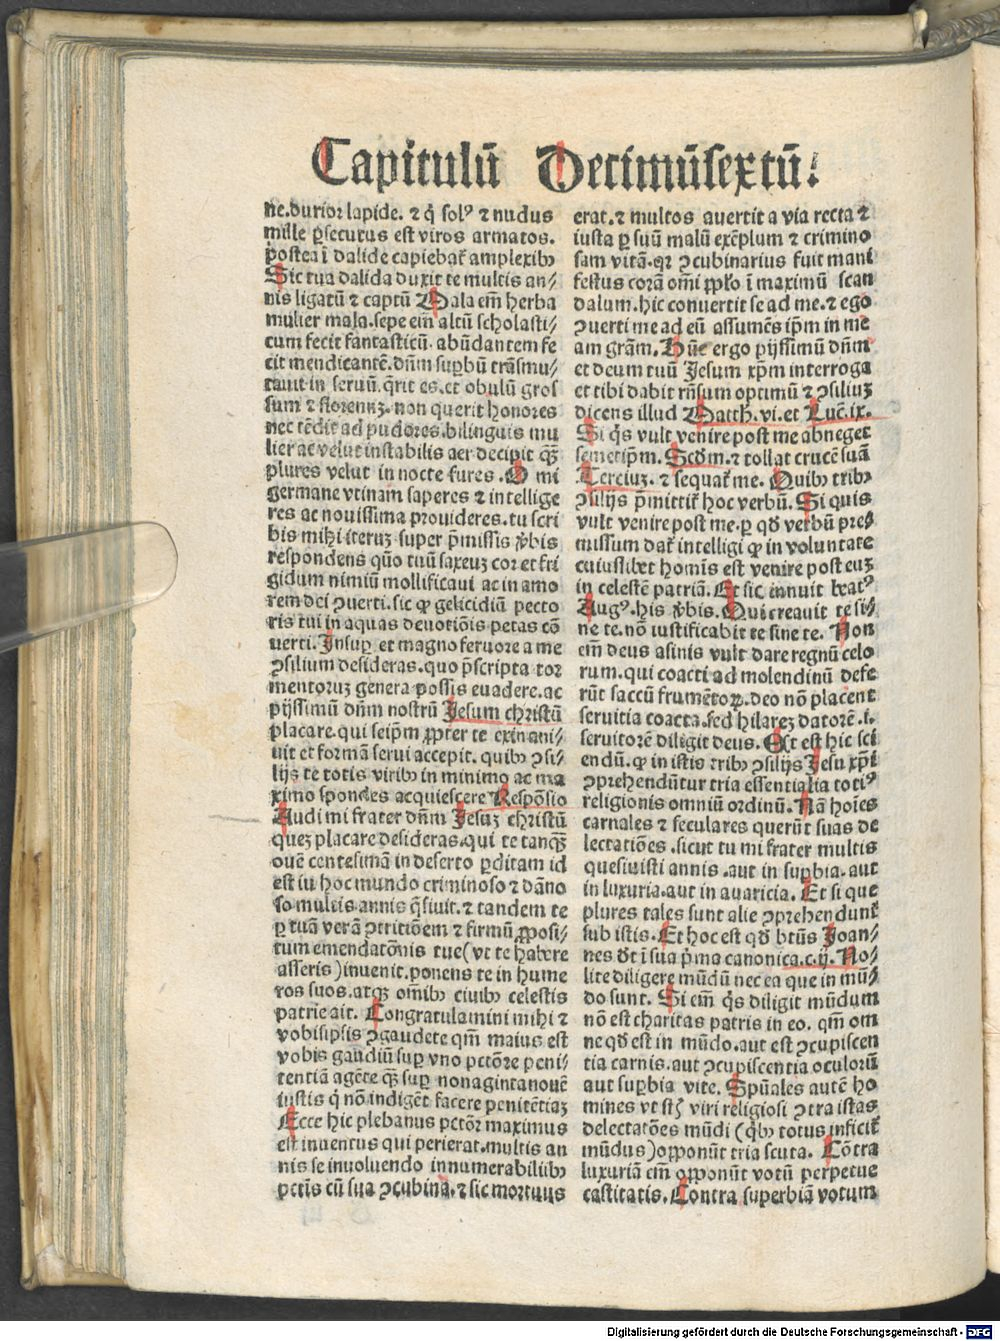 Capitulū Decimūsextū.
ne. durior lapide. ⁊ q̄ solꝰ ⁊ nudus
mille ꝑsecutus est viros armatos.
postea ī dalide capiebat̃ amplexibꝫ
Sic tua dalida duxit te multis an⸗
nis ligatū ⁊ captū Mala em̄ herba
mulier mala. sepe em̄ altū scholasti⸗
cum fecit fantasticū. abūdantem fe
cit mendicantē. dn̄m suꝑbū trāsmu⸗
tauit in seruū. q̄rit es. et obulū gros
sum ⁊ florenuꝫ. non querit honores
nec tēdit ad pudores. bilinguis mu
lier ac velut instabilis aer decipit qꝫ̄
plures velut in nocte fures. O mi
germane vtinam saperes ⁊ intellige
res ac nouissima prouideres. tu scri
bis mihi iteruꝫ super p̄missis v̓bis
respondens quō tuū saxeuꝫ cor et fri
gidum nimiū mollificaui ac in amo
rem dei ꝯuerti. sic ꝙ gelicidiū pecto
ris tui in aquas deuotiōis petas cō
uerti. Insuꝑ et magno feruore a me
ꝯsilium desideras. quo p̄scripta tor
mentoruꝫ genera possis euadere. ac
pijssimū dn̄m nostrū Jesum christū
placare. qui seip̄m ꝓpter te exinani⸗
uit et formā serui accepit. quibꝫ ꝯsi⸗
lijs te totis viribꝫ in minimo ac ma
ximo spondes acquiescere Respōsio
Audi mi frater dn̄m Jesuꝫ christū
queꝫ placare desideras. qui te tanqꝫ̄
ouē centesimā in deserto ꝑditam id
est in hoc mundo criminoso ⁊ dāno
so multis annis q̄siuit. ⁊ tandem te
ꝑ tuā verā ꝯtritiōem ⁊ firmū ꝓposi⸗
tum emendatōnis tue (vt te habere
asseris) inuenit. ponens te in hume
ros suos. atqꝫ om̄ibꝫ ciuibꝫ celestis
patrie ait. Congratulamini mihi ⁊
vobisipsis ꝯgaudete qm̄ maius est
vobis gaudiū suꝑ vno pctōre peni⸗
tentiā agēte qꝫ̄ suꝑ nonagintanouē
iustis q̄ nō indigēt facere penitētiaꝫ
Ecce hic plebanus pctōr maximus
est inuentus qui perierat. multis an
nis se inuoluendo innumerabilibꝫ
pctīs cū sua ꝯcubina. ⁊ sic mortuus
erat. ⁊ multos auertit a via recta ⁊
iusta ꝑ suū malū exēplum ⁊ crimino
sam vitā. qꝛ ꝯcubinarius fuit mani
festus corā om̄i pp̄lo ī maximū scan
dalum. hic conuertit se ad me. ⁊ ego
ꝯuerti me ad eū assumēs ip̄m in me
am grām. Hūc ergo pijssimū dn̄m
et deum tuū Jesum xp̄m interroga
et tibi dabit rn̄sum optimū ⁊ ꝯsiliuꝫ
dicens illud Matth. vi. et Luc̄. ix.
Si q̄s vult venire post me abneget
semetip̄m. Scd̄m. ⁊ tollat crucē suā
Terciuꝫ. ⁊ sequat̃ me. Quibꝫ tribꝫ
ꝯsilijs p̄mittit̃ hoc verbū. Si quis
vult venire post me. ꝑ qd̄ verbū pre⸗
missum dat̃ intelligi ꝙ in voluntate
cuiuslibet homīs est venire post euꝫ
in celestē patriā. Et sic innuit beatꝰ
Augꝰ. his v̓bis. Qui creauit te si⸗
ne te. nō iustificabit te sine te. Non
em̄ deus asinis vult dare regnū celo
rum. qui coacti ad molendinū defe
rūt saccū frumētoꝝ. deo nō placent
seruitia coacta. sed hilareꝫ datorē. i.
seruitorē diligit deus. Est est hic sci
endū. ꝙ in istis tribꝫ ꝯsilijs Jesu xp̄i
ꝯprehendūtur tria essentialia totiꝰ
religionis omniū ordinū. Nā hoīes
carnales ⁊ seculares querūt suas de
lectatiōes. sicut tu mi frater multis
quesiuisti annis. aut in suꝑbia. aut
in luxuria. aut in auaricia. Et si que
plures tales sunt alie ꝯprehendunt̃
sub istis. Et hoc est qd̄ bt̄us Joan⸗
nes dt̄ ī sua p̄ma canonica. c. ij. No⸗
lite diligere mūdū nec ea que in mū⸗
do sunt. Si em̄ q̄s diligit mūdum
nō est charitas patris in eo. qm̄ om
ne qd̄ est in mūdo. aut est ꝯcupiscen
tia carnis. aut ꝯcupiscentia oculorū
aut suꝑbia vite. Spūales autē ho
mines vt st̄ viri religiosi ꝯtra istas
delectatōes mūdi (q̄bꝫ totus inficit̃
mūdus) opponūt tria scuta. Cōtra
luxuriā em̄ opponūt votū perpetue
castitatis. Contra superbiā votum
Digitalisierung gefördert durch die Deutsche Forschungsgemeinschaft - DFG